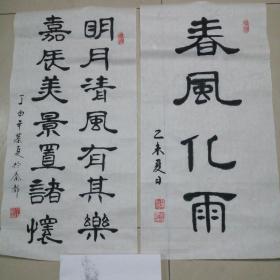 春風化雨
乙未夏日
明月清風有其樂
嘉辰美景置諸懷
丁酉年榮夏於秦都